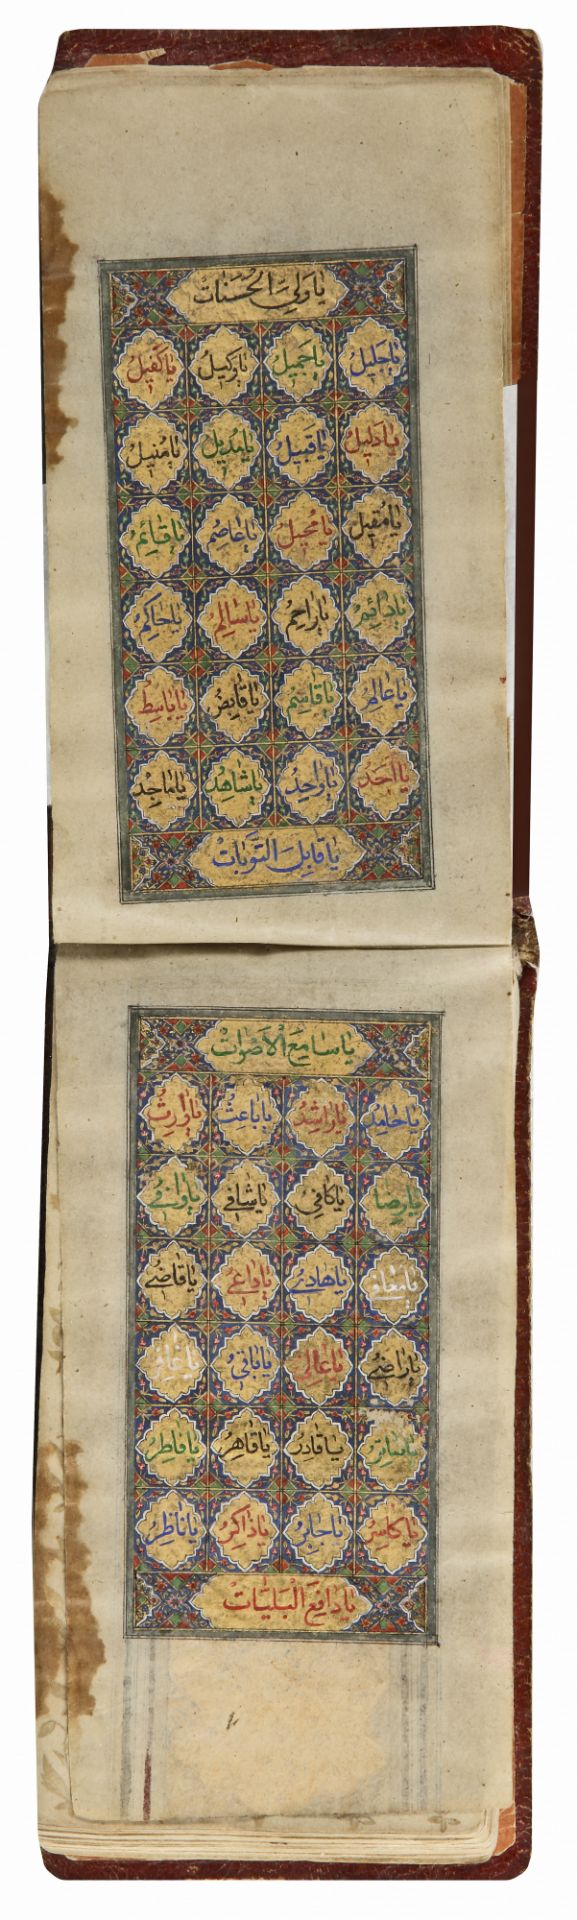 يا ولي الحسنات
يا جليل يا جميل يا وكيل يا كفيل
يا دليل يا قبيل يا مديل يا منيل
يا مقيل يا محيل يا عاصم يا قائم
يا دائم يا راحم يا سالم يا حاكم
يا عالم يا قاسم يا قابض يا باسط
يا احد يا واحد يا شاهد يا ماجد
يا قابل التوبات
يا سامع الاصوات
يا حامد يا راشد يا باعث يا وارث
يا رضا يا كافي يا شافي يا وافي
يا هادي يا داعي يا قاضي
يا راضي يا باقي
يا ساتر يا قادر يا قاهر يا فاطر
يا كاسر يا جابر يا ذاكر يا ناظر
يا دافع البليات